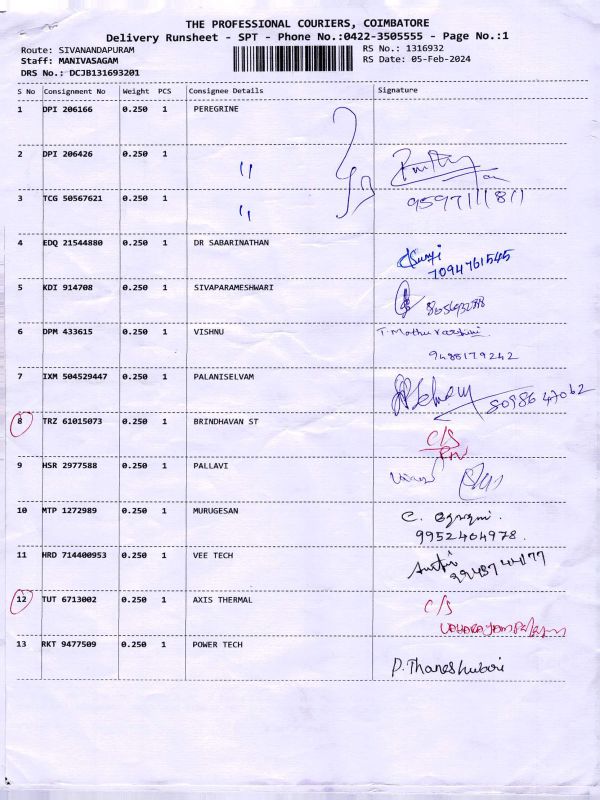 THE PROFESSIONAL COURIERS, COIMBATORE
Delivery Runsheet - SPT - Phone No.:0422-3505555 - Page No.:1
Route: SIVANANDAPURAM RS No.: 1316932
Staff: MANIVASAGAM RS Date: 05-Feb-2024
DRS No.: DCJB131693201
S No Consignment No Weight PCS Consignee Details Signature
1 DPI 206166 0.250 1 PEREGRINE
2 DPI 206426 0.250 1 "
3 TCG 50567621 0.250 1 "
4 EDQ 21544880 0.250 1 DR SABARINATHAN
7094761545
5 KDI 914708 0.250 1 SIVAPARAMESHWARI
6 DPM 433615 0.250 1 VISHNU
9485179242
7 IXM 504529447 0.250 1 PALANISELVAM
8098647062
8 TRZ 61015073 0.250 1 BRINDHAVAN ST
C/S
9 HSR 2977588 0.250 1 PALLAVI
10 MTP 1272989 0.250 1 MURUGESAN
9952404978.
11 HRD 714400953 0.250 1 VEE TECH
12 TUT 6713002 0.250 1 AXIS THERMAL C/S
13 RKT 9477509 0.250 1 POWER TECH
P. Thaneshwari